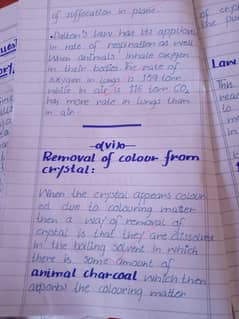 of suffocation in plane.
• Dalton's law has its applicat
in rate of respiration as well
When animals inhale oxygen
in their bodies the rate of
oxygen in lungs is 159 torr
while in air is 116 torr CO₂
has more rate in lungs than
in air
(vi)
Removal of colour from
crystal:
When the crystal appears colour
ed due to colouring matter
then a way of removal of
crystal is that they are dissolved
in the boiling solvent in which
there is some amount of
animal charcoal which then
adsorbs the colouring matter
Law
This